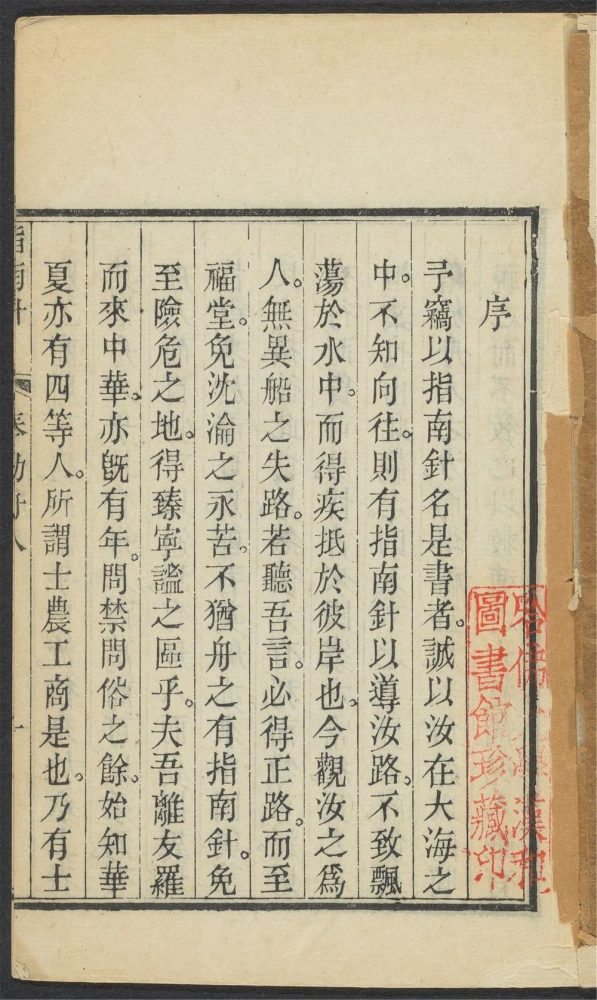 序
予竊以指南針名是書者。誠以汝在大海之
中。不知向往。則有指南針以導汝路。不致飄
蕩於水中。而得疾抵於彼岸也。今觀汝之爲
人。無異船之失路。若聽吾言。必得正路。而至
福堂。免沈淪之永苦。不猶舟之有指南針。免
至險危之地。得臻寧謐之區乎。夫吾離友羅
而來中華。亦旣有年。問禁問俗之餘。始知華
夏亦有四等人。所謂士農工商是也。乃有士
指南針
奉勸世人
一
哈佛大學漢和
圖書館珍藏印